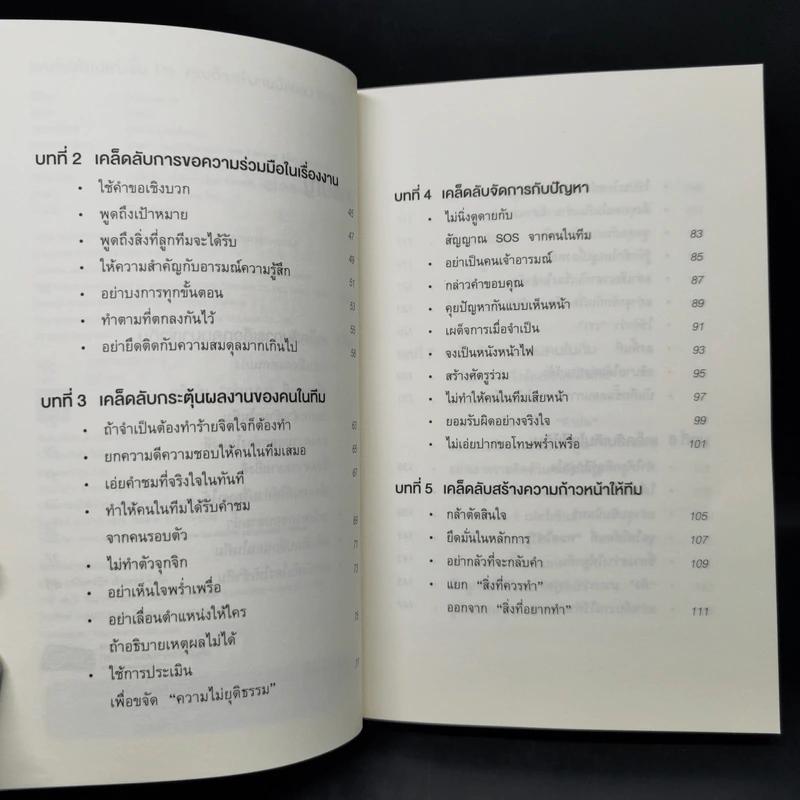 บทที่ 2 เคล็ดลับการขอความร่วมมือในเรื่องงาน
• ใช้คำขอเชิงบวก 45
• พูดถึงเป้าหมาย 47
• พูดถึงสิ่งที่ลูกทีมจะได้รับ 49
• ให้ความสำคัญกับอารมณ์ความรู้สึก 51
• อย่าบงการทุกขั้นตอน 53
• ทำตามที่ตกลงกันไว้ 55
• อย่ายึดติดกับความสมดุลมากเกินไป 58
บทที่ 3 เคล็ดลับกระตุ้นผลงานของคนในทีม
• ถ้าจำเป็นต้องทำร้ายจิตใจก็ต้องทำ 63
• ยกความดีความชอบให้คนในทีมเสมอ 65
• เอ่ยคำชมที่จริงใจในทันที 67
• ทำให้คนในทีมได้รับคำชม
จากคนรอบตัว 69
• ไม่ทำตัวจุกจิก 71
• อย่าเห็นใจพร่ำเพรื่อ 73
• อย่าเลื่อนตำแหน่งให้ใคร
ถ้าอธิบายเหตุผลไม่ได้ 75
• ใช้การประเมิน
เพื่อขจัด “ความไม่ยุติธรรม” 77
บทที่ 4 เคล็ดลับจัดการกับปัญหา
• ไม่นิ่งดูดายกับ
สัญญาณ SOS จากคนในทีม 83
• อย่าเป็นคนเจ้าอารมณ์ 85
• กล่าวคำขอบคุณ 87
• คุยปัญหากันแบบเห็นหน้า 89
• เผด็จการเมื่อจำเป็น 91
• จงเป็นหนังหน้าไฟ 93
• สร้างศัตรูร่วม 95
• ไม่ทำให้คนในทีมเสียหน้า 97
• ยอมรับผิดอย่างจริงใจ 99
• ไม่เอ่ยปากขอโทษพร่ำเพรื่อ 101
บทที่ 5 เคล็ดลับสร้างความก้าวหน้าให้ทีม
• กล้าตัดสินใจ 105
• ยึดมั่นในหลักการ 107
• อย่ากลัวที่จะกลับคำ 109
• แยก “สิ่งที่ควรทำ”
ออกจาก “สิ่งที่อยากทำ” 111